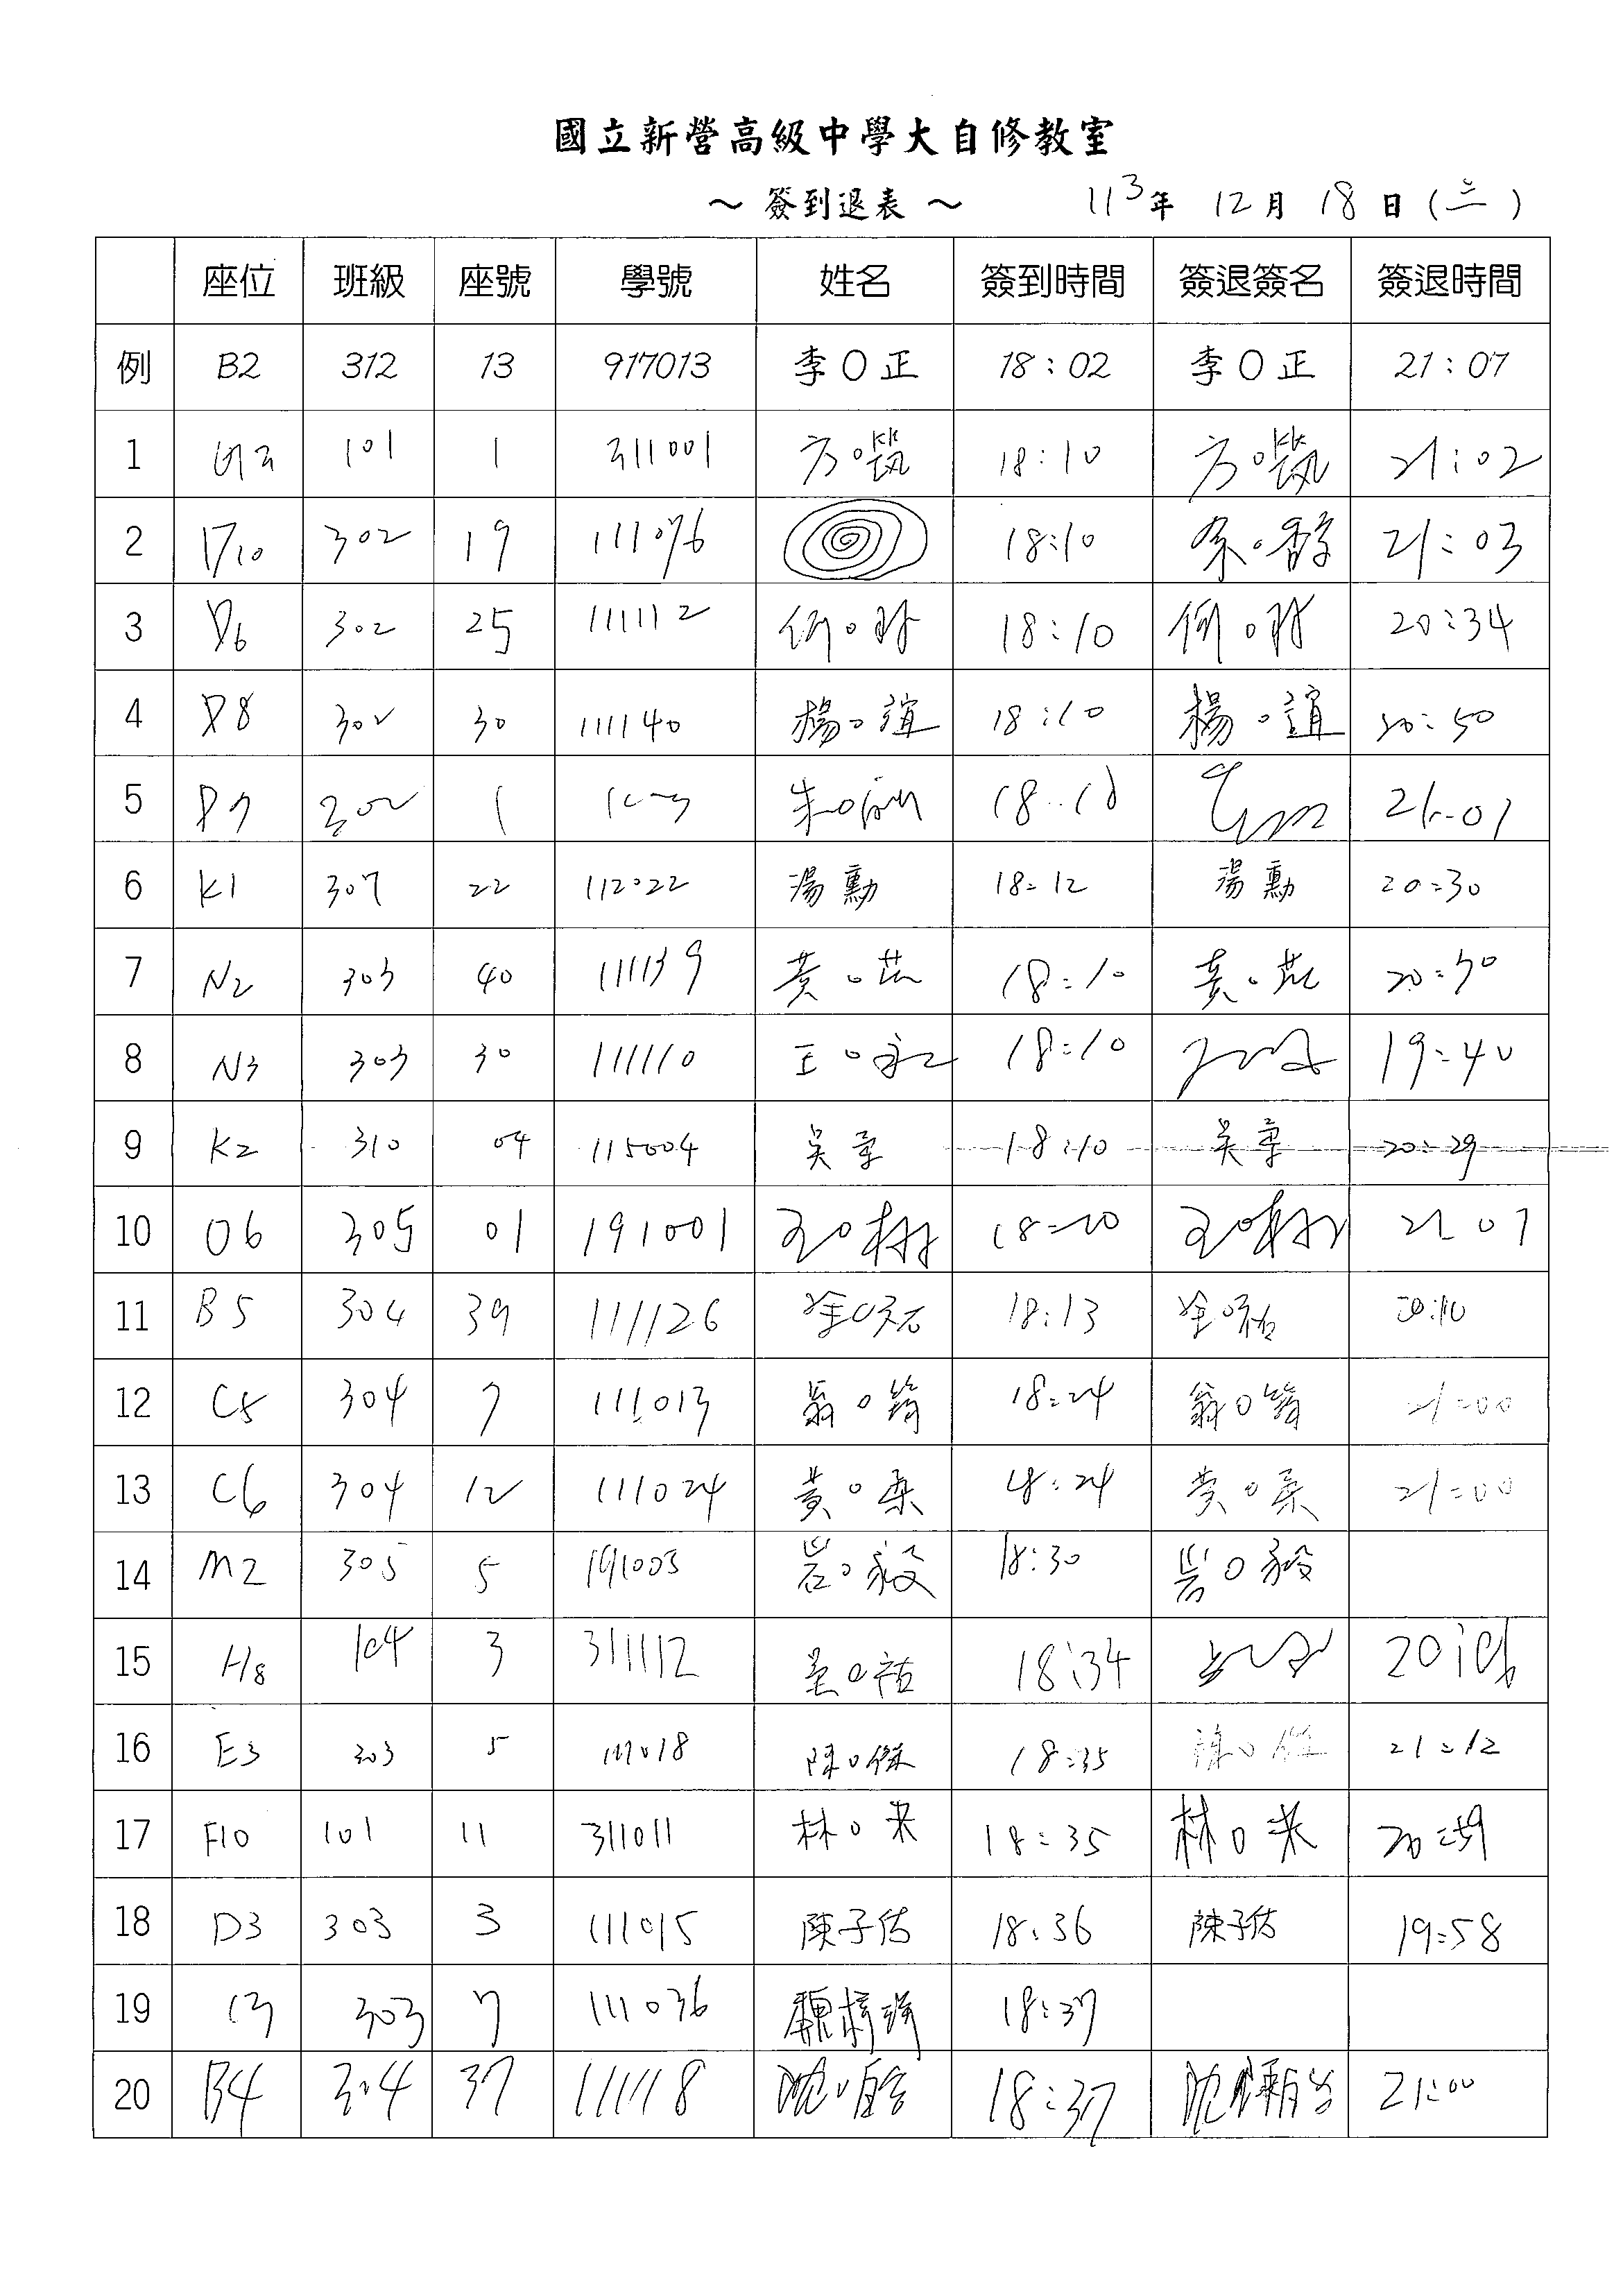 國立新營高級中學大自修教室
～ 簽到退表 ～ 113年 12月 18日 (三)
座位 班級 座號 學號 姓名 簽到時間 簽退簽名 簽退時間
例 B2 312 13 917013 李O正 18:02 李O正 21:07
1 101 1 311001 方O 18:10 方O 21:02
2 302 19 111076 18:10 余O 21:03
3 D6 302 25 111112 何O 18:10 何O 20:34
4 D8 302 30 111140 楊O誼 18:10 楊O誼 20:50
5 D7 302 1 朱O 18:10 21:01
6 K1 307 22 112022 湯勳 18:12 湯勳 20:30
7 N2 303 40 111139 黃O 18:10 黃O 20:50
8 N3 303 30 111110 王O 18:10 19:40
9 K2 310 04 115004 吳章 18:10 吳章 20:29
10 O6 305 01 191001 王O樹 18:10 王O樹 21:01
11 B5 304 39 111126 涂O 18:13 20:10
12 C8 304 7 111013 翁O 18:24 翁O 21:00
13 C6 304 12 111024 黃O柔 18:24 黃O柔 21:00
14 M2 305 5 191003 O毅 18:30 O毅
15 H8 104 3 311112 吳O祐 18:34
16 E3 303 5 111018 陳O傑 18:35 陳O傑 21:12
17 F10 101 11 311011 林O米 18:35 林O米 20:59
18 D3 303 3 111015 陳子佑 18:36 陳子佑 19:58
19 C3 303 7 111036 魏 18:37
20 B4 304 37 111118 沈O 18:37 沈 21:00